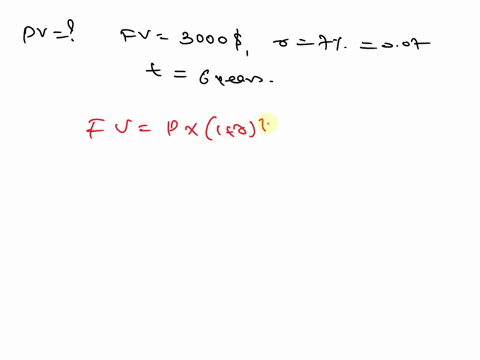 PV=? FV = 3000$, r = 7% = 0.07
t = 6 years.
FV = P x (1+r)